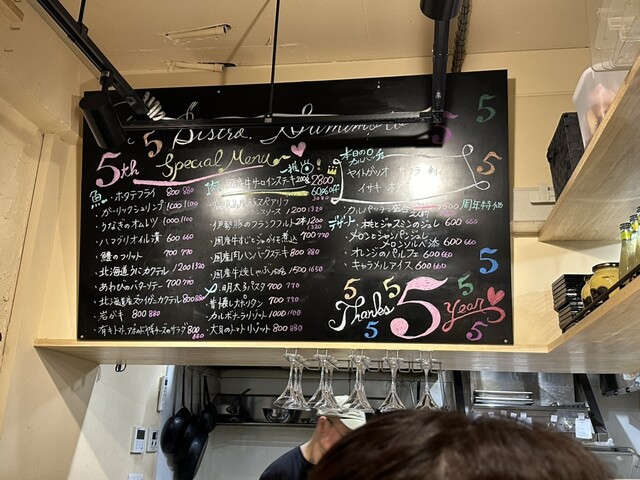 5 Bistro
5th Special Menu
魚
・ホタテフライ 800 880
・ガーリックシュリンプ 1000 1100
・うなぎのオムレツ 1000 1100
・ハマグリオイル漬 600 660
・鱧のフリット 700 770
・北海道うにカクテル 1200 1320
・あわびのバターソテー 700 770
・北海道産ズワイガニカクテル 800 880
・岩ガキ 800 880
・有キトマト、アボカド、やぎチーズのサラダ 800 880
肉
・国産牛サーロインステーキ 200g 2800
60%OFF
3080
スペアリブ
ソース 1200 1320
・伊勢豚のフランクフルト 2本 1200 1320
・国産牛すじとジャガイモ煮込 700 770
・国産肉ハンバーグステーキ 800 880
・国産牛焼しゃぶ 1500 1650
・明太子パスタ 700 770
・昔懐しナポリタン 700 770
・カルボナーラリゾット 1000 1100
・大貝のトマトリゾット 800 880
本日のカルパッチョ
ヤイトガツオ
イサキ
1500 周年特価
デザート
・桃とジャスミンのジュレ 600 660
・メロンとシャンパンジュレ
メロンソルベ添 600 660
・オレンジのパルフェ 600 660
・キャラメルアイス 600 660
Thanks 5 Years
5
5
5
5
5
5
5
5
5